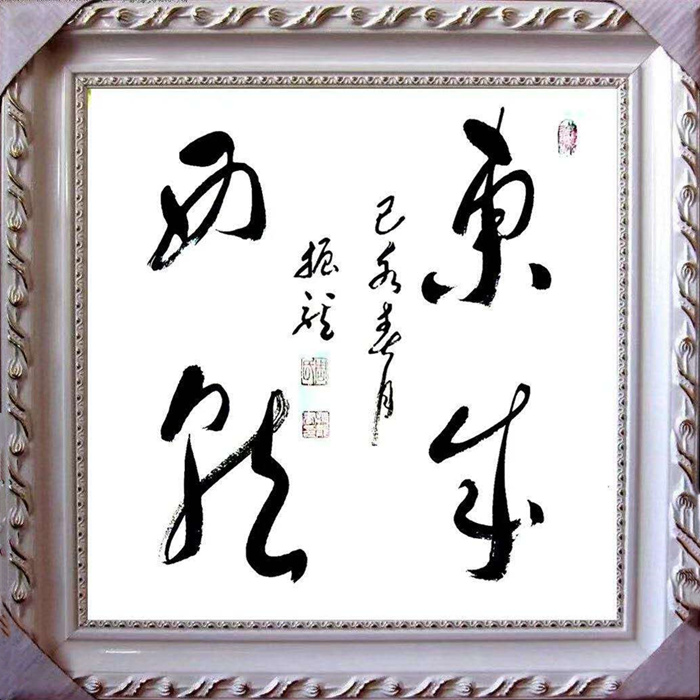 東成
西就
己亥春月
振龍